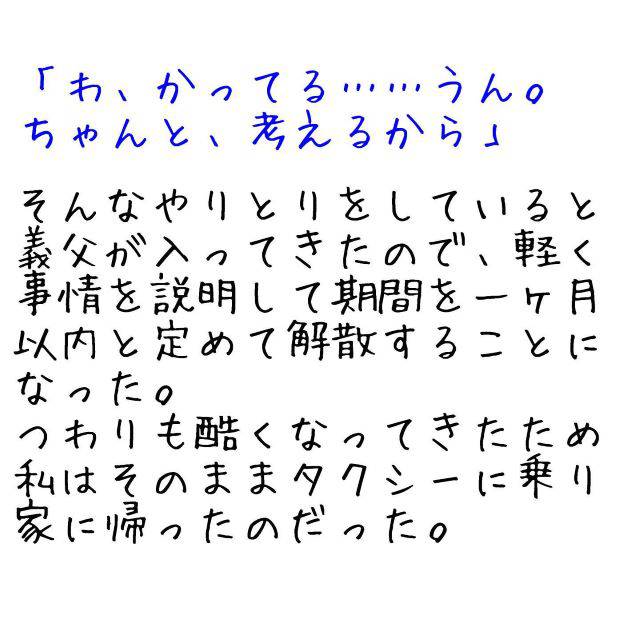 「わ、かってる……うん。
ちゃんと、考えるから」
そんなやりとりをしていると
義父が入ってきたので、軽く
事情を説明して期間を一ケ月
以内と定めて解散することに
なった。
つわりも酷くなってきたため
私はそのままタクシーに乗り
家に帰ったのだった。